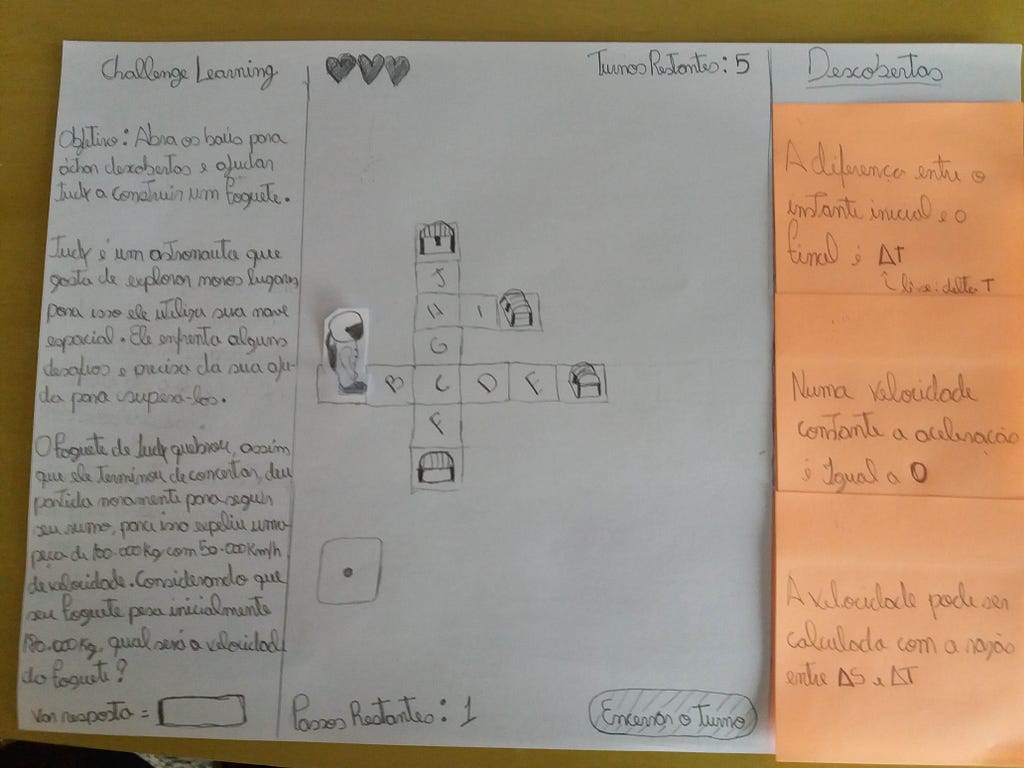 Challenge Learning
Objetivo: Abra os baús para
achar descobertas e ajudar
Judy a construir um foguete.
Judy é um astronauta que
gosta de explorar novos lugares,
para isso ele utiliza sua nave
espacial. Ele enfrenta alguns
desafios e precisa da sua aju-
da para superá-los.
O foguete de Judy quebrou, assim
que ele terminou de concertar, deu
partida novamente para seguir
seu rumo, para isso expeliu uma
peça de 100.000Kg com 50.000Km/h
de velocidade. Considerando que
seu foguete pesa inicialmente
180.000Kg, qual será a velocidade
do foguete?
Var resposta =
Turnos Restantes: 5
J
H I
G
B C D E
F
Passos Restantes: 1
Encerrar o turno
Descobertas
A diferença entre o
instante inicial e o
final é ΔT
lê-se: delta T
Numa velocidade
constante a aceleração
é igual a 0
A velocidade pode ser
calculada com a razão
entre ΔS e ΔT